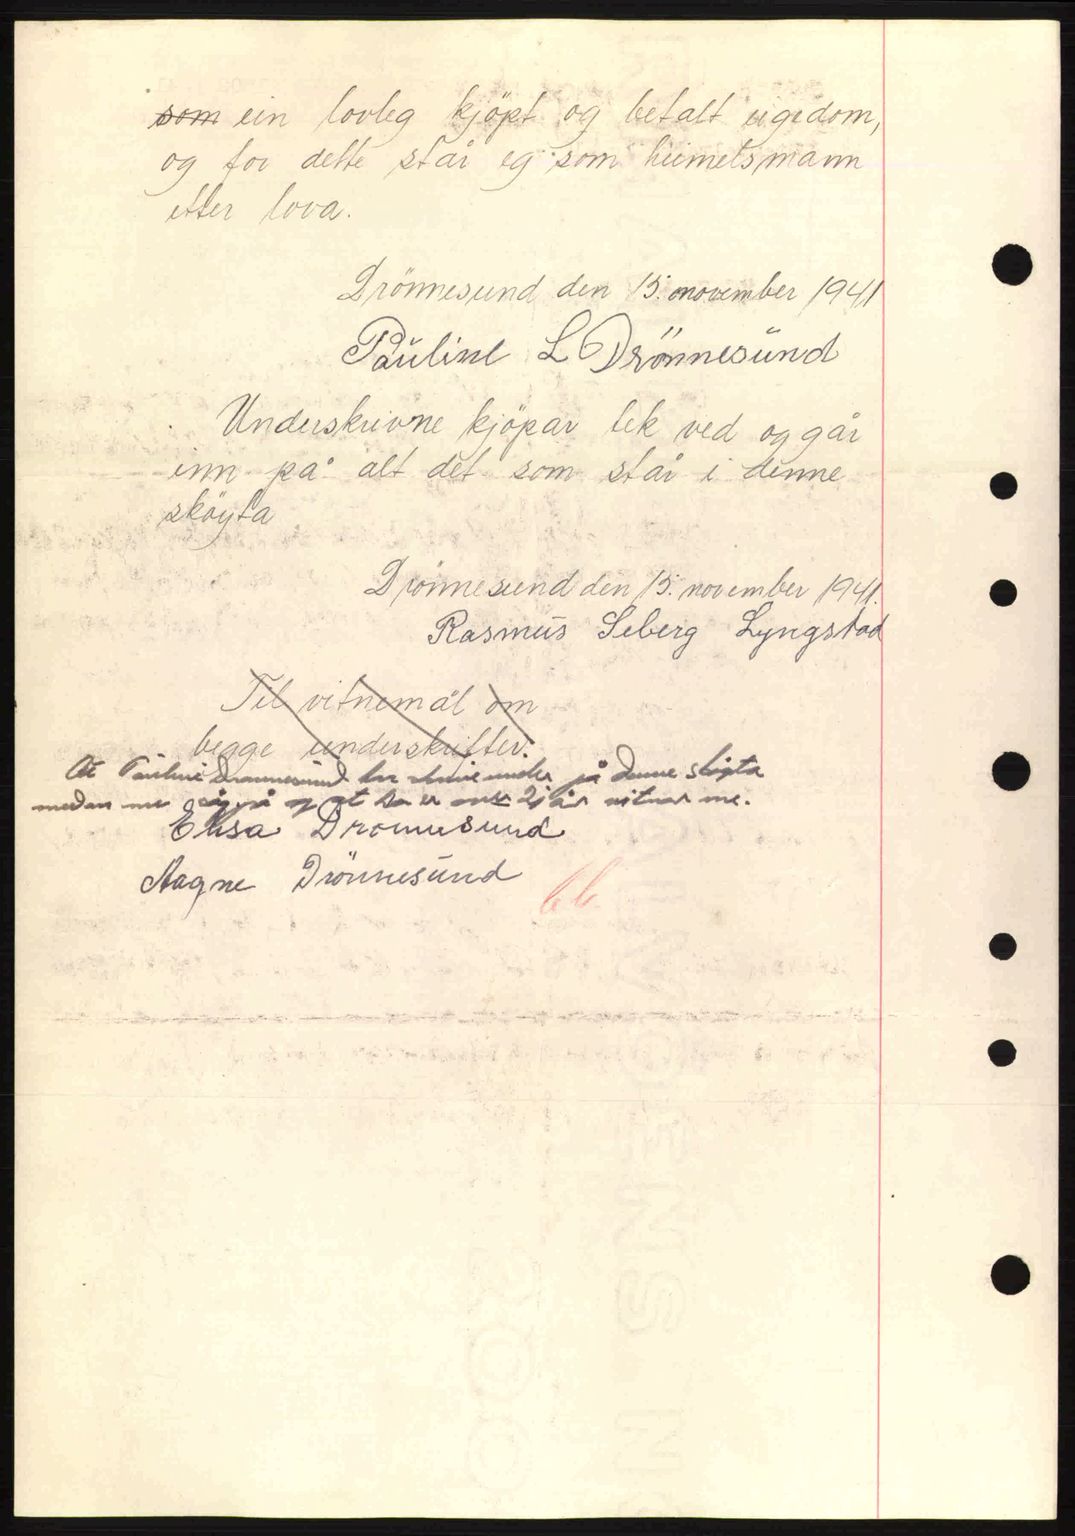 som ein lovleg kjöpt og betalt eigedom,
og for dette står eg som heimelsmann
etter lova.
Drönnesund den 15. november 1941
Pauline L Drönnesund
Underskrivne kjöpar tek ved og går
inn på alt det som står i denne
sköyta
Drönnesund den 15. november 1941.
Rasmus Seberg Lyngstad
Til vitnemål om
begge underskrifter.
At Pauline Drønnesund har skrive under på denne skøyta
medan me såg på og at ho er over 21 år vitnar me.
Elisa Dronnesund
Magne Drönnesund
66